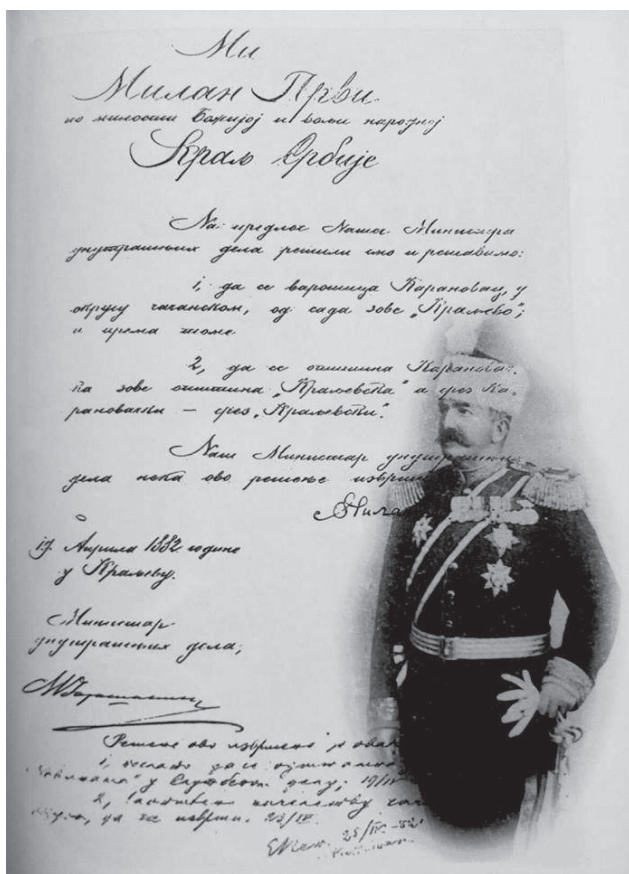 Ми
Милан Први
по милости Божијој и вољи народној
Краљ Србије
На предлог Нашег Министра
унутрашњих дела решили смо и решавамо:
1, да се варошица Карановац, у
округу чачанском, од сада зове „Краљево“;
и према томе
2, да се општина Карановач-
ка зове општина „Краљевска“ а срез Ка-
рановачки — срез „Краљевски“.
Наш Министар унутрашњи
дела нека ово решење изврши
Милан
19. Априла 1882 године
у Краљеву.
Министар
унутрашњих дела,
Решење ово извршено је овако
1, послато да се
у Службеном делу; 19/IV
2,
да га изврши. 23/IV.
25/IV-82